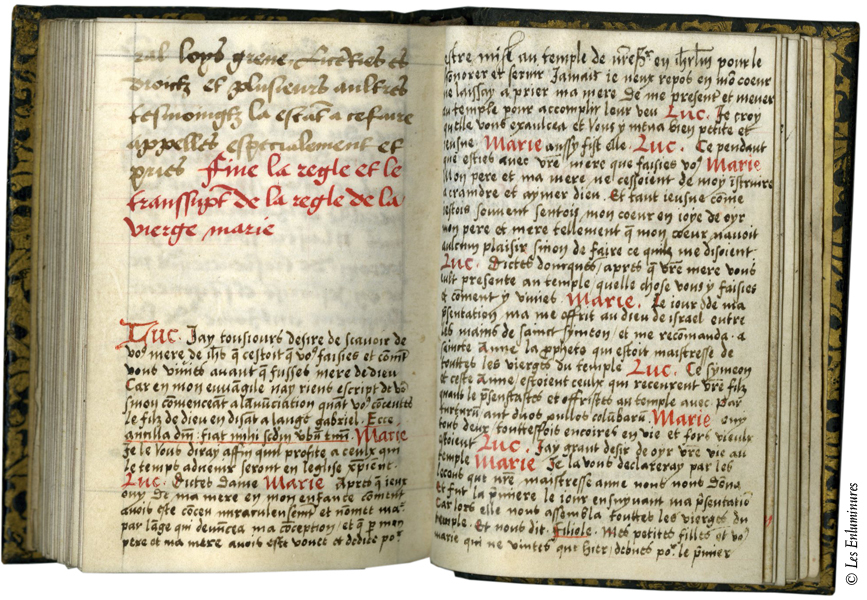 ral loys grene. Lictries et
droictz et plusieurs aultres
tesmoingtz la estat a ce faire
appelles especialement et
pries Fine la regle et le
transsupt de la regle de la
vierge marie
Luc. Jay tousiours desire de scavoir de
vo9 mere de ihs q cestoit q vo9 faisies et comt
vous vivies avant q fusses mere de dieu
Car en mon evvagile nay riens escript de vo9
sinon comenceat a lanuciation quat vo9 conceutes
le filz de dieu en disat a lange gabriel. Ecce
ancilla dni. fiat mihi scdm vbu tuu. Marie
Je le vous diray affin quil profite a ceulx qui
le temps advenir seront en leglise xpiene.
Luc. Dictes dame Marie Apres q ieux
ouy de ma mere en mon enfance coment
avois este coceu miraculeusemt et nomee ma
par lage qui denucea ma coception / et q p mon
pere et ma mere avois este vouee et dediee po
estre mise au temple de nre sr en ihrlm pour le
honorer et servir Jamais ie neux repos en mo coeur
ne laissay a prier ma mere de me presenter et mener
au temple pour accomplir leur veu Luc. Je croy
quelle vous exaulcea et vous y mena bien petite et
ieusne. Marie aussy fist elle. Luc. Ce pendant
que esties avec vre mere que faisies vo9 Marie
Mon pere et ma mere ne cessoient de moy istruire
a craindre et aymer dieu. Et tant ieusne come
estois souvent sentois mon coeur en ioye de oyr
mon pere et mere tellement q mon coeur navoit
aulcun plaisir sinon de faire ce quilz me disoient
Luc. Dictes doncques / apres q vre mere vous
eult presente au temple, quelle chose vous y faisies
et coment y vivies. Marie. Le iour de ma
psentation ma me offrit au dieu de israel entre
les mains de sainct symeon / et me recomanda a
saincte Anne la pphete qui estoit maistresse de
touttes les vierges du temple Luc. Ce symeon
et ceste Anne / estoient ceulx qui receurent vre filz
quand le psentastes et offristes au temple avec. Par
turturu aut duos pullos colubaru Marie ouy
tous deux touttesfois encoires en vie et fors vieulx
estoient Luc. Jay grant desir de oyr vre vie au
temple Marie Je la vous declareray par les
lecons que nre maistresse anne nous dona
Et fut la pmiere le iour ensuyvant ma psentatio
Car lors elle nous assembla touttes les vierges du
temple. Et nous dit. Filiole. Mes petites filles et vo9
marie qui ne vintes que hier / debves po le pmier
© Les Enluminures